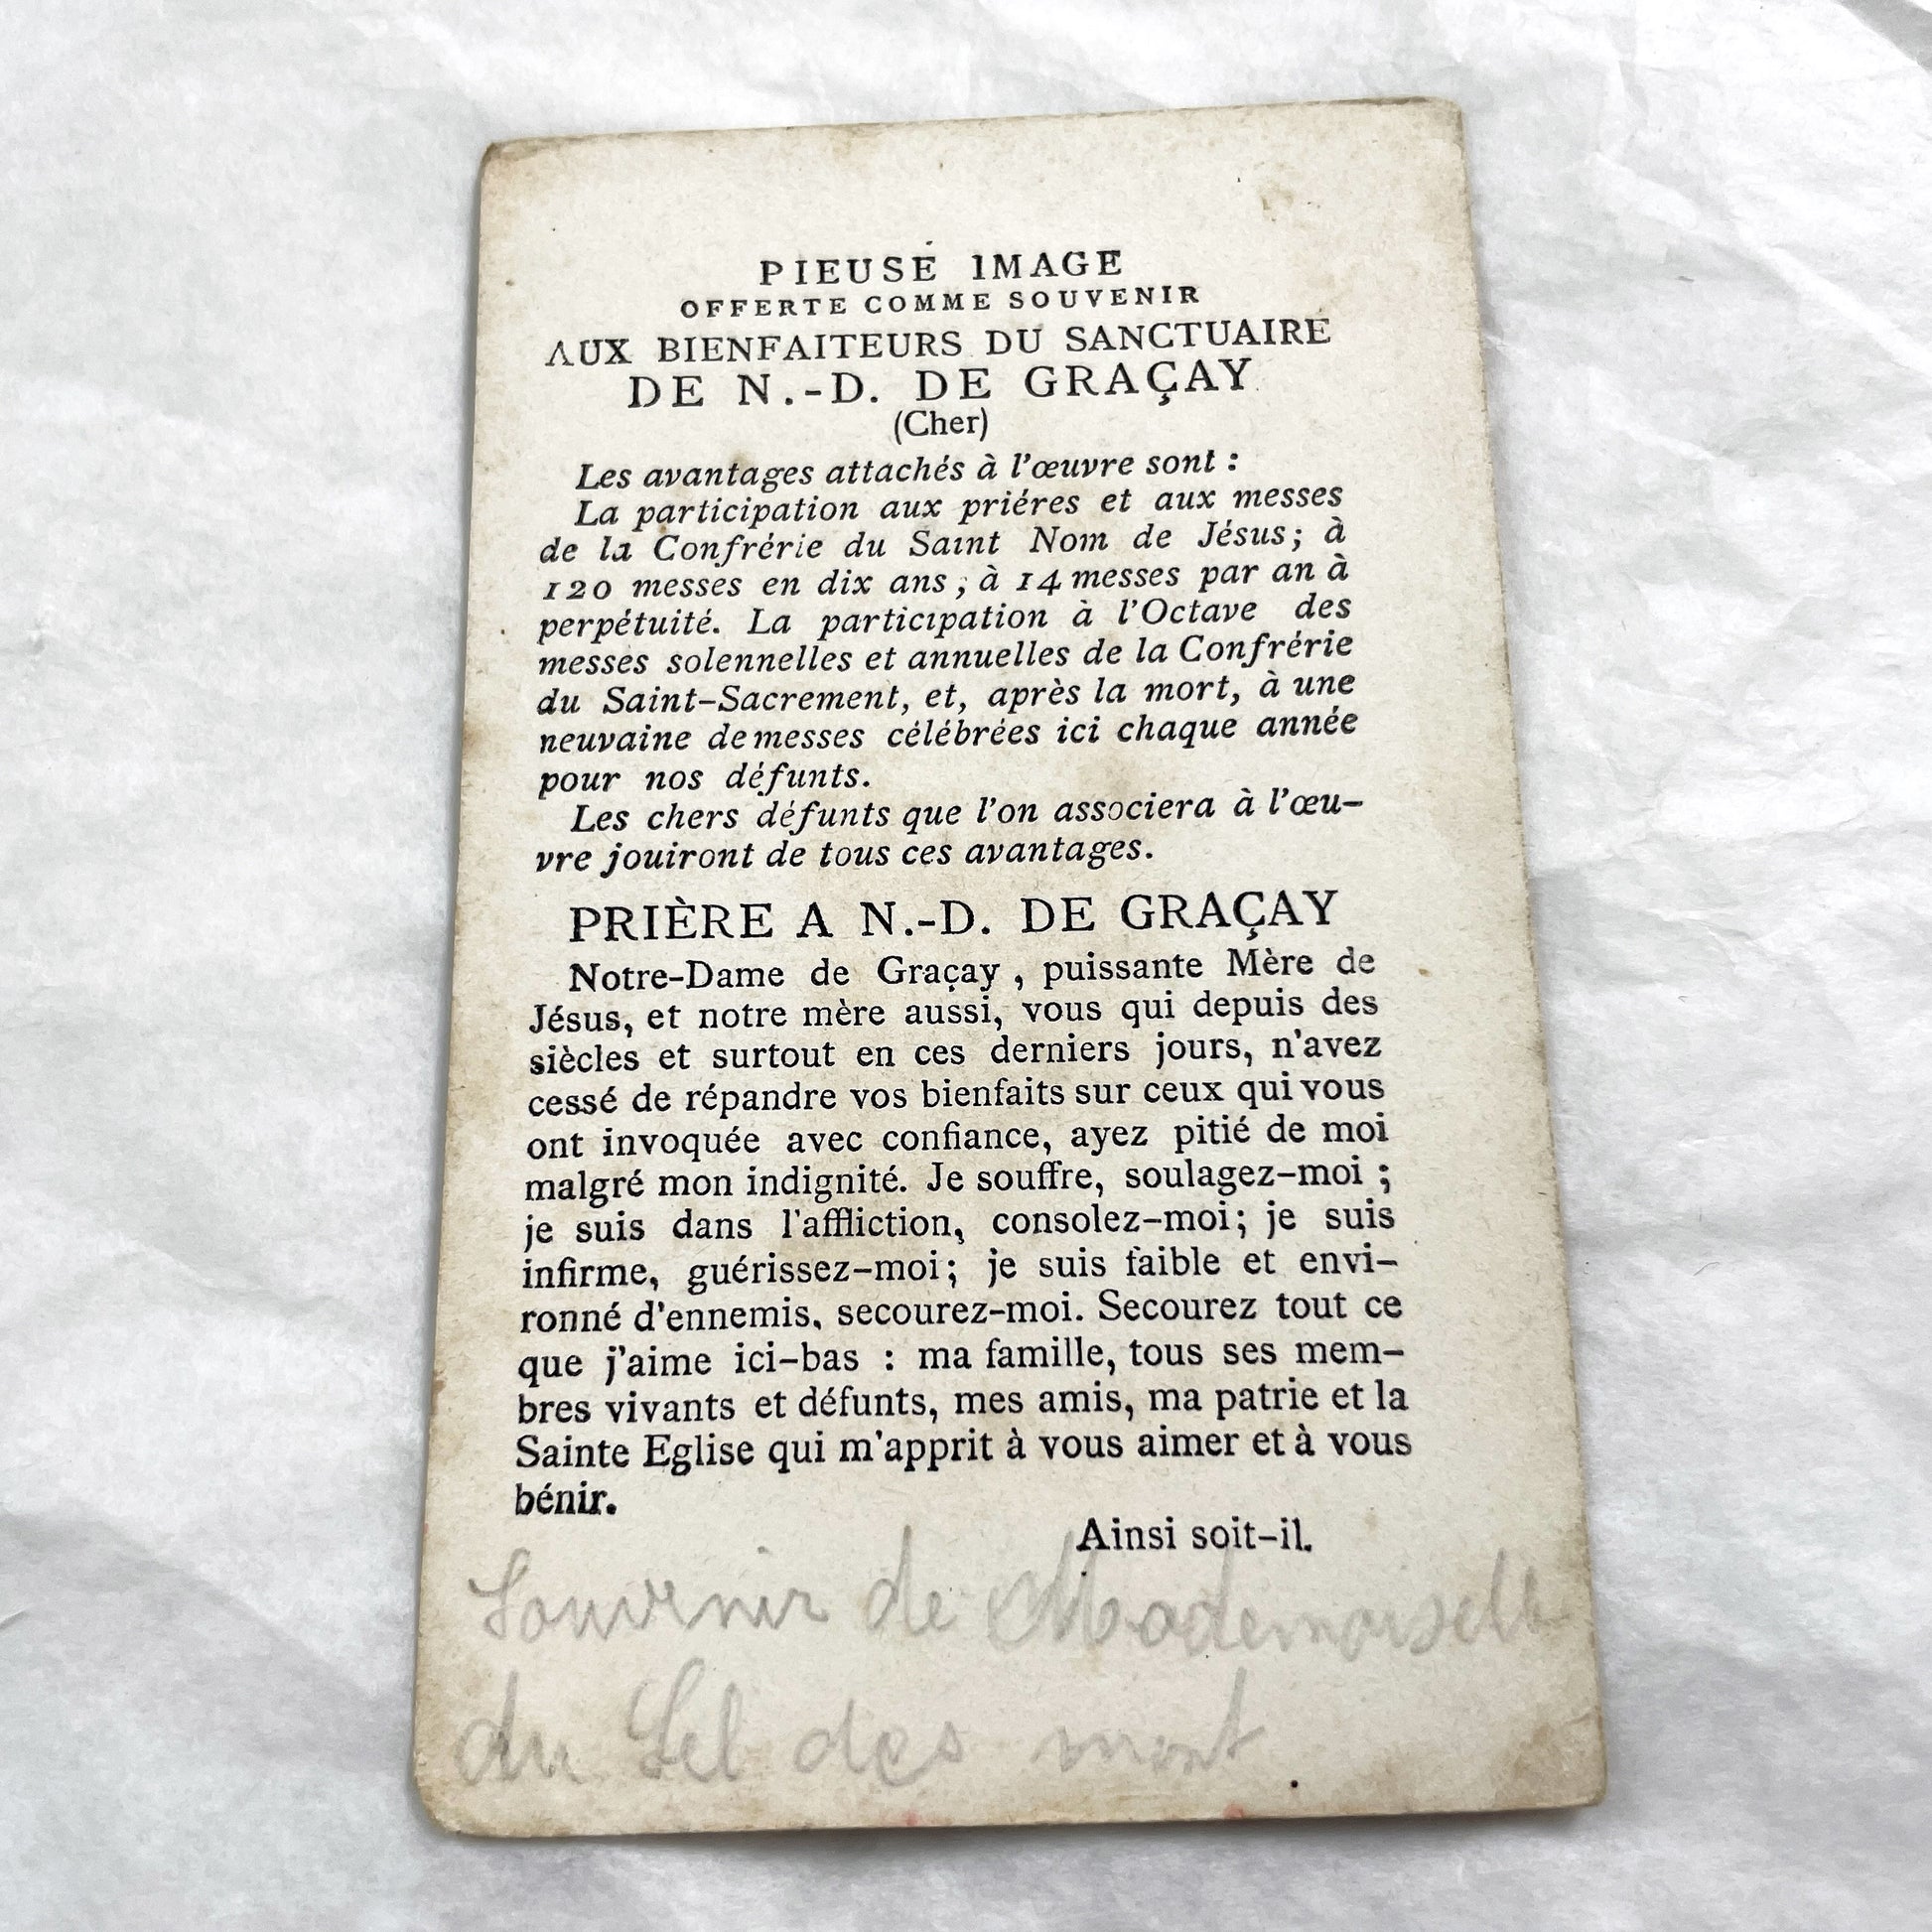 PIEUSE IMAGE
OFFERTE COMME SOUVENIR
AUX BIENFAITEURS DU SANCTUAIRE
DE N.-D. DE GRAÇAY
(Cher)
Les avantages attachés à l'œuvre sont :
La participation aux priéres et aux messes
de la Confrérie du Saint Nom de Jésus; à
120 messes en dix ans, à 14 messes par an à
perpétuité. La participation à l'Octave des
messes solennelles et annuelles de la Confrérie
du Saint-Sacrement, et, après la mort, à une
neuvaine de messes célébrées ici chaque année
pour nos défunts.
Les chers défunts que l'on associera à l'œu-
vre jouiront de tous ces avantages.
PRIÈRE A N.-D. DE GRAÇAY
Notre-Dame de Graçay, puissante Mère de
Jésus, et notre mère aussi, vous qui depuis des
siècles et surtout en ces derniers jours, n'avez
cessé de répandre vos bienfaits sur ceux qui vous
ont invoquée avec confiance, ayez pitié de moi
malgré mon indignité. Je souffre, soulagez-moi ;
je suis dans l'affliction, consolez-moi; je suis
infirme, guérissez-moi; je suis faible et envi-
ronné d'ennemis, secourez-moi. Secourez tout ce
que j'aime ici-bas : ma famille, tous ses mem-
bres vivants et défunts, mes amis, ma patrie et la
Sainte Eglise qui m'apprit à vous aimer et à vous
bénir.
Ainsi soit-il.
Souvenir de Mademoiselle
du des mont